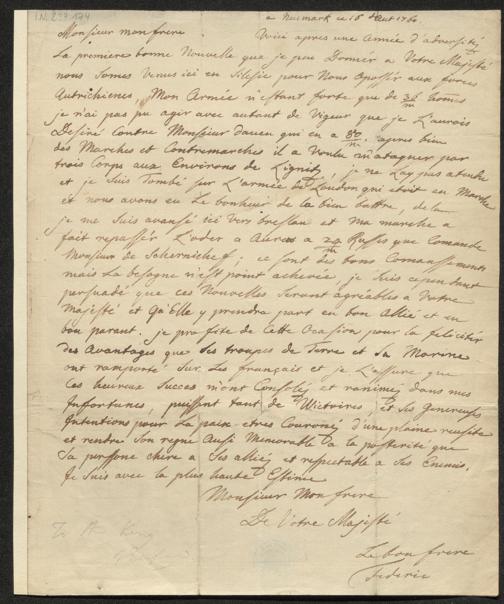 a Neumark ce 16 d'aut 1760
Monsieur mon frere Voici apres une Année d'adversité
La premiere bonne Nouvelle que je peu Donner a Votre Majesté
nous Somes Venus ici en Silesie pour Nous Oposser aux forces
Autrichienes, Mon Armée n'estant forte que de 36/m homes
je n'ai pas pu agir avec autant de Vigeur que je L'aurois
Desiré Contre Monsieur daun qui en a 80/m apres bien
des Marches et Contremarches il a Voulu m'ataquer par
trois Corps aux Environs de Lignitz, je ne L'ay pas atendu
et je Suis Tombé sur L'armée de Loudon qui etoit en Marche
et nous avons eu Le bonheur de la bien battre, de la
je me Suis avansé ici Vers breslau et ma marche a
fait repasser L'oder a Auras a 24/m Russes que Comande
Monsieur de Schernichef; ce sont des bons Comanssements
mais La besogne n'est point achevée, je suis cependant
persuadé que ces Nouvelles Seront agréables a Votre
Majesté et qu'Elle y prendra part en bon Allié et en
bon parant. je profite de Cette Ocasion pour la feliciter
des Avantages que Ses troupes de Terre et Sa Marine
ont ramporté Sur Les français et je L'assure que
Ces heureux Succes m'ont Consolé et ranimé dans mes
Infortunes, puissent tant de Victoires, et Ses Genereuses
Intentions pour La paix etres Couroné d'une plaine reusite
et rendre Son regne Ausi Memorable a la posterité que
Sa personne chere a Ses alliés et respectable a Ses Enemis.
Je Suis avec la plus haute Estime
Monsieur Mon frere
De Votre Majesté
Le bon frere
Federic
To the King